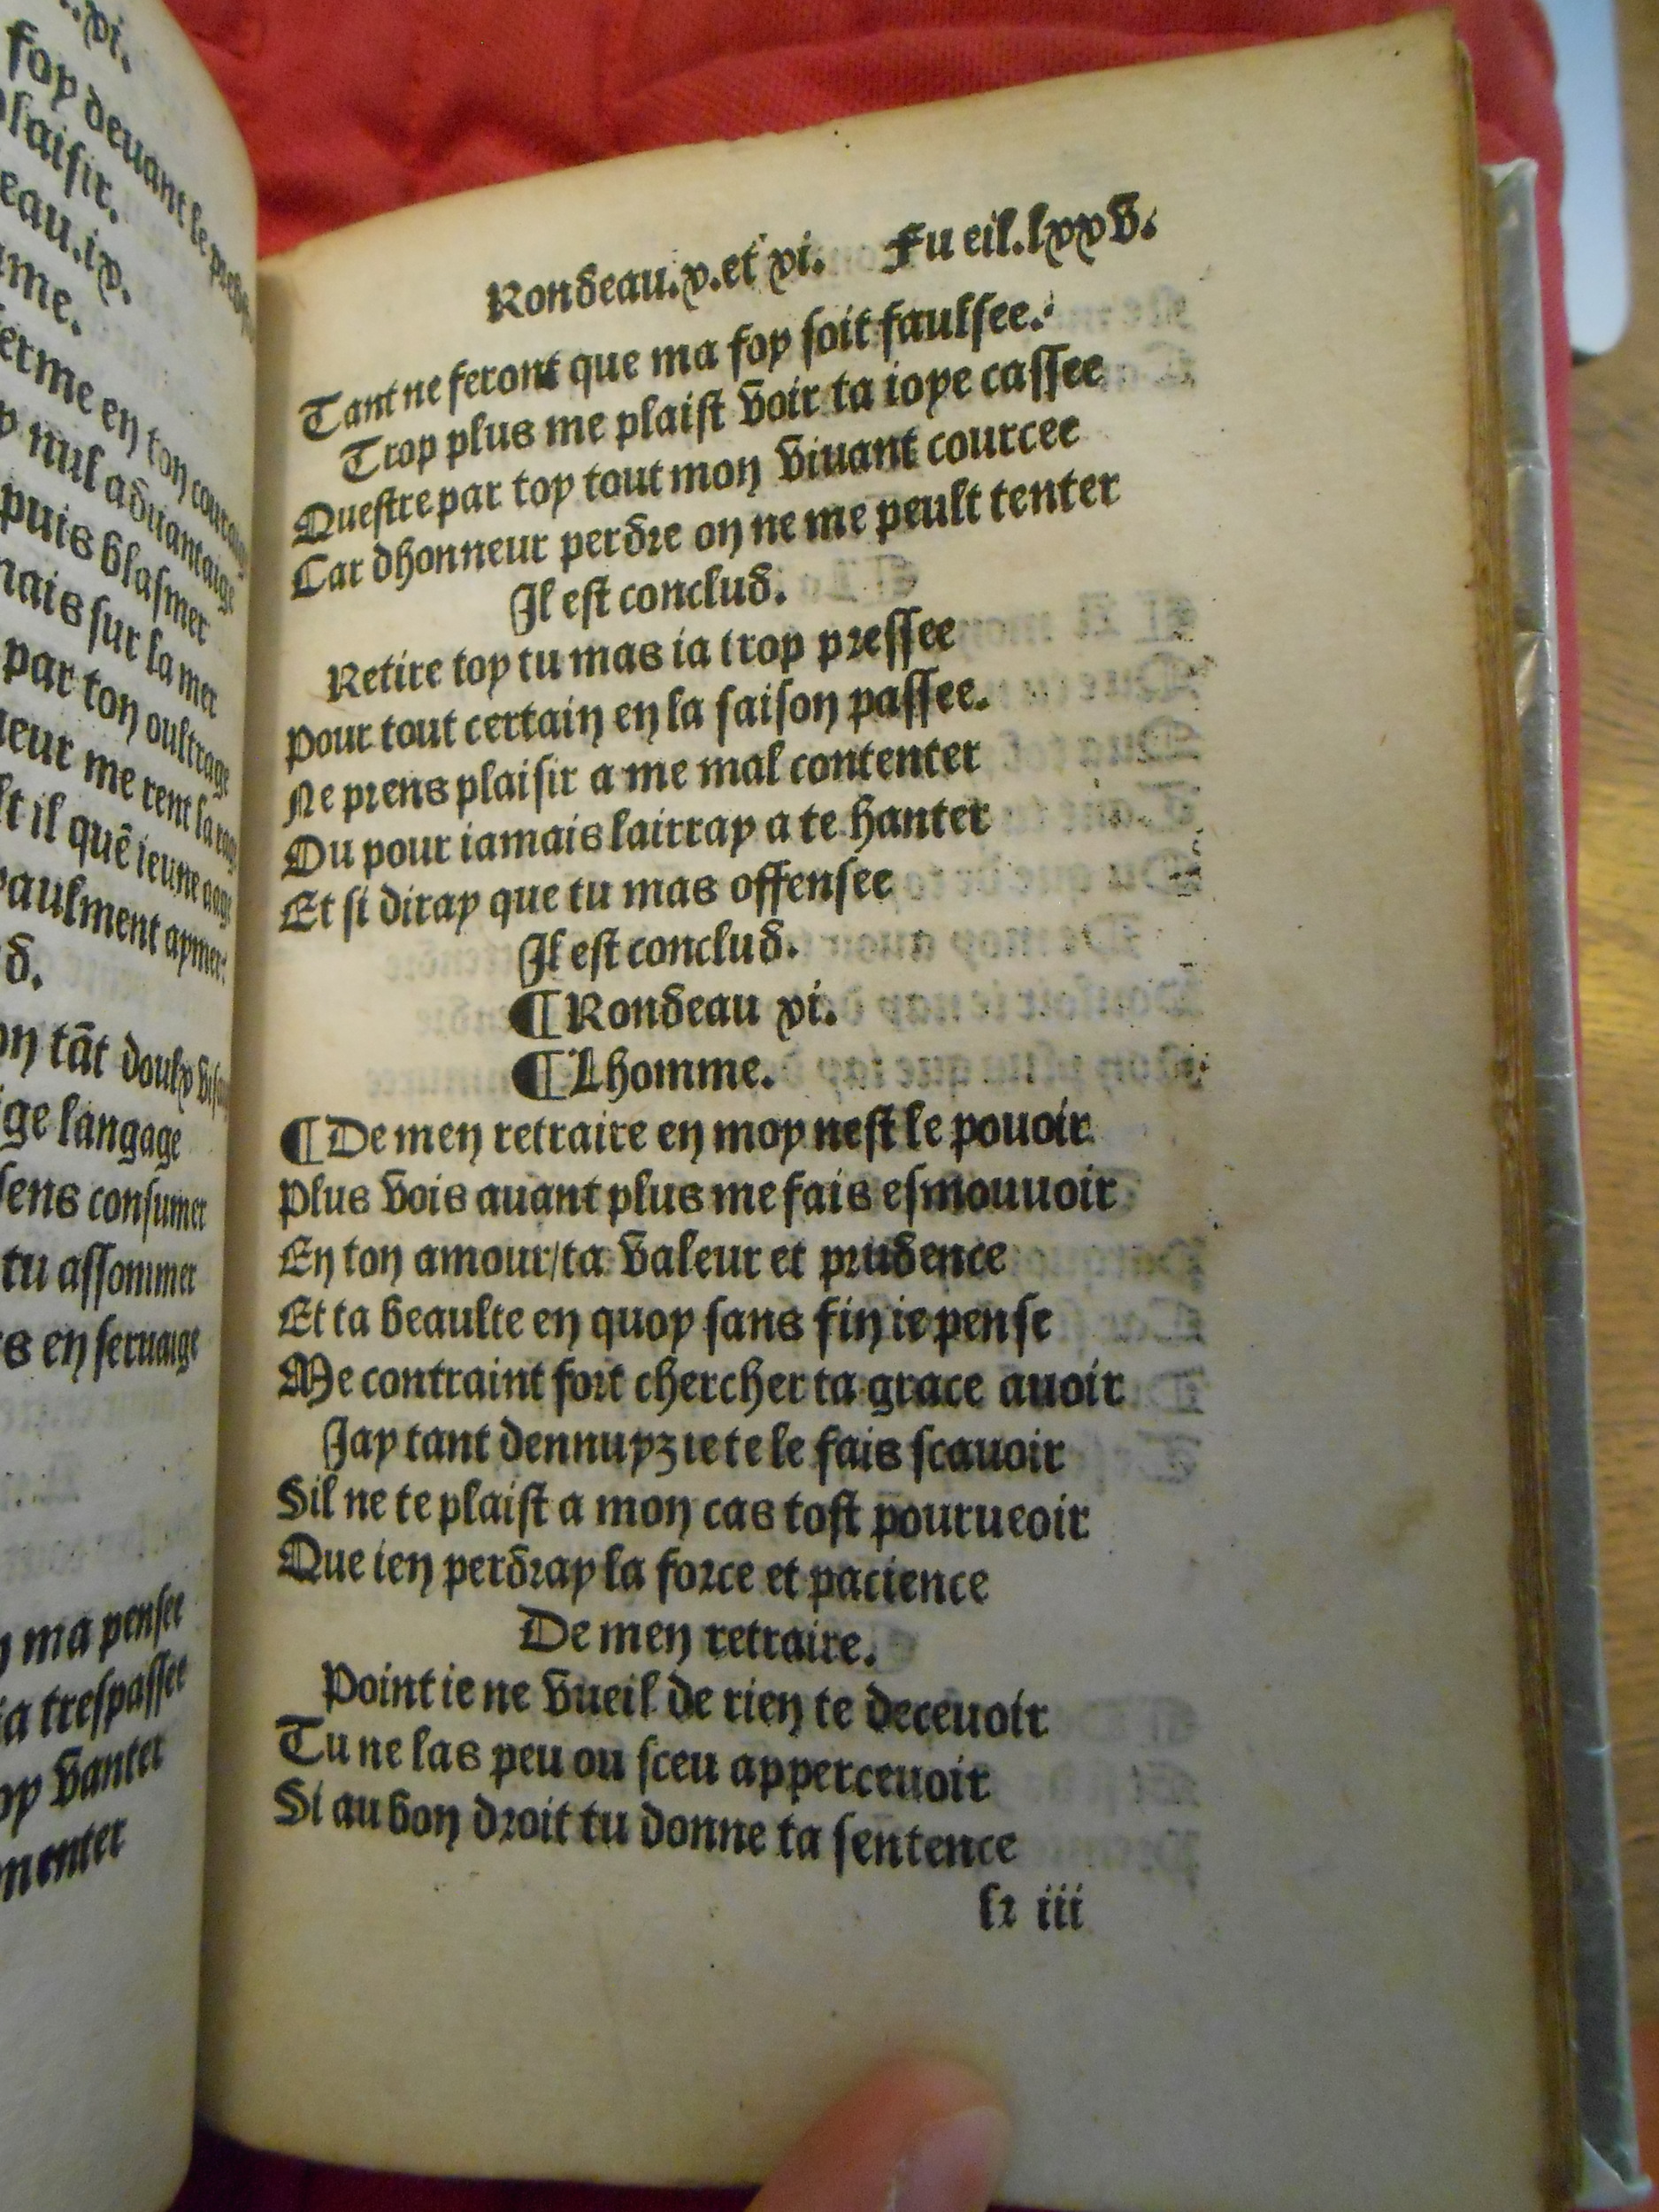 .xi.
foy deuant le
plaisir.
eau.ix.
me.
erme en ton
nul aduantaige
puis blasmer
mais sur la mer
par ton oultrage
eur me rent la rage
il quē ieune aage
aulment aymer:
d.
on tāt doulx
ge langage
sens consumer
tu assommer
s en seruaige
ma pensee
ia trespassee
oy vanter
menter
Rondeau.x.et xi. Fueil.lxxv.
Tant ne feront que ma foy soit faulsee.
Trop plus me plaist voir ta ioye cassee
Questre par toy tout mon viuant cource
Car dhonneur perdre on ne me peult tenter
Il est conclud.
Retire toy tu mas ia trop pressee
Pour tout certain en la saison passee.
Ne prens plaisir a me mal contenter
Ou pour iamais lairray a te hanter
Et si diray que tu mas offensee
Il est conclud.
¶Rondeau xi.
¶Lhomme.
¶De men retraire en moy nest le pouoir
Plus vois auant plus me fais esmouuoir
En ton amour/ta valeur et prudence
Et ta beaulte en quoy sans fin ie pense
Me contraint fort chercher ta grace auoir
Jay tant dennuyz ie te le fais scauoir
Sil ne te plaist a mon cas tost pourueoir
Que ien perdray la force et pacience
De men retraire.
Point ie ne vueil de rien te deceuoir
Tu ne las peu ou sceu apperceuoir
Si au bon droit tu donne ta sentence
k iii